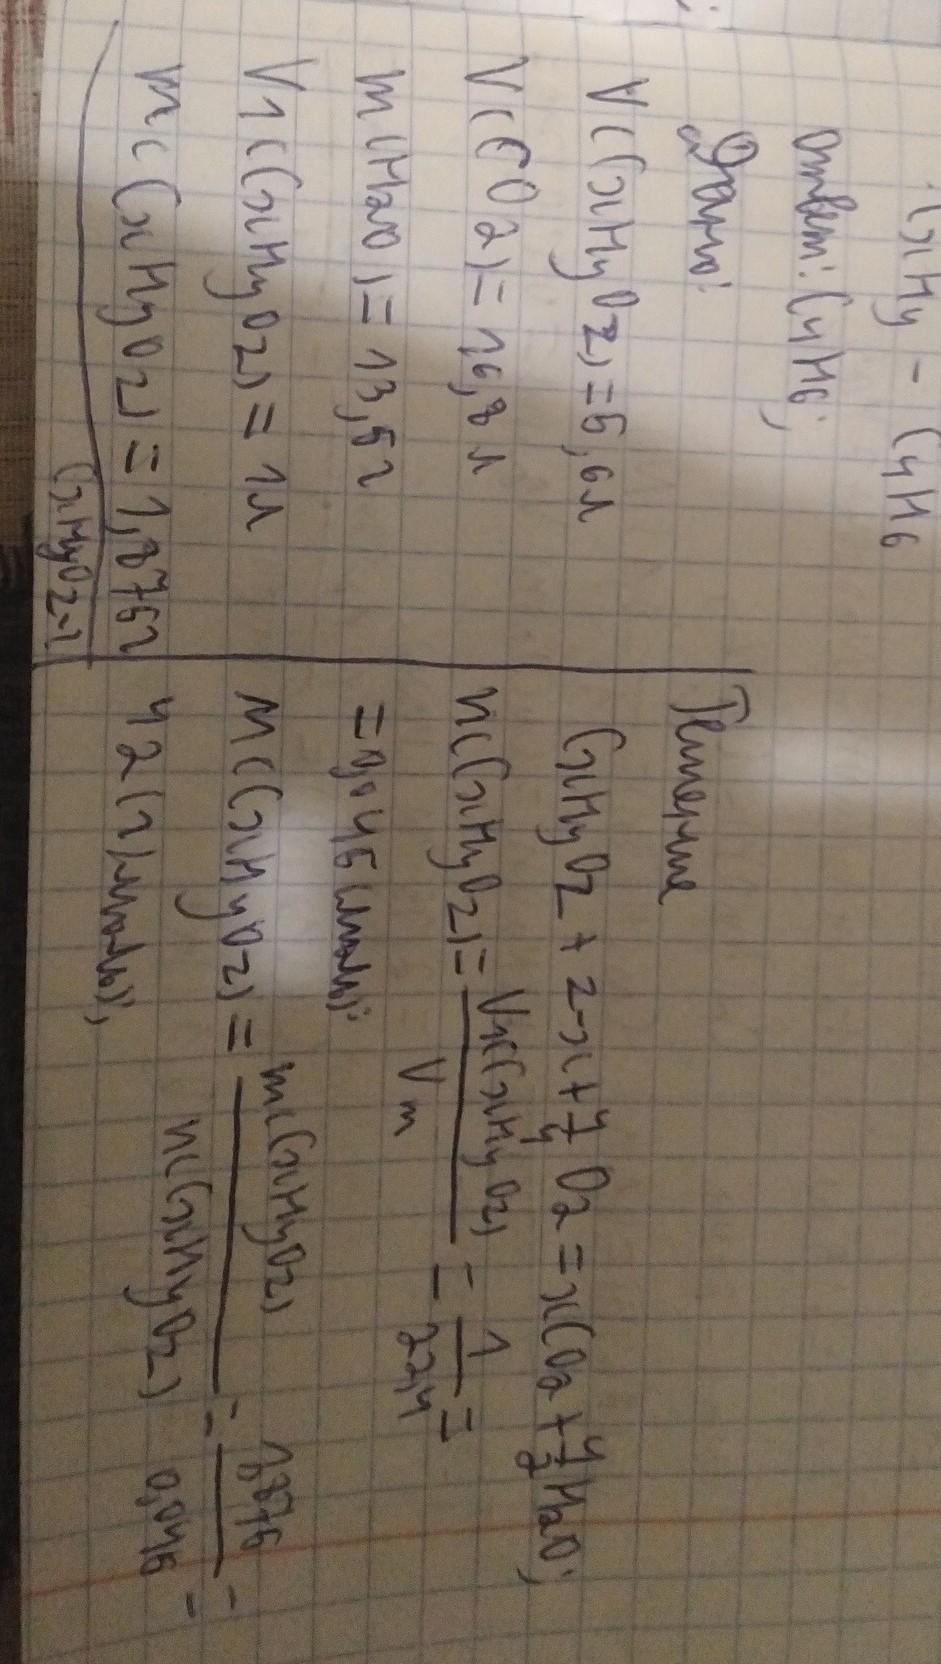 CxHy - C4H6
Ответ: C4H6;
Дано:
V(CxHyOz)=5,6л
V(CO2)=16,8л
m(H2O)=13,5г
V1(CxHyOz)=1л
m(CxHyOz)=1,875г
CxHyOz-?
Решение
CxHyOz + z-x+y/4 O2 = xCO2 + y/2 H2O;
n(CxHyOz)= V1(CxHyOz)/Vm = 1/22,4 =
=0,045(моль);
M(CxHyOz)= m(CxHyOz)/n(CxHyOz) = 1,875/0,045 =
42(г/моль);